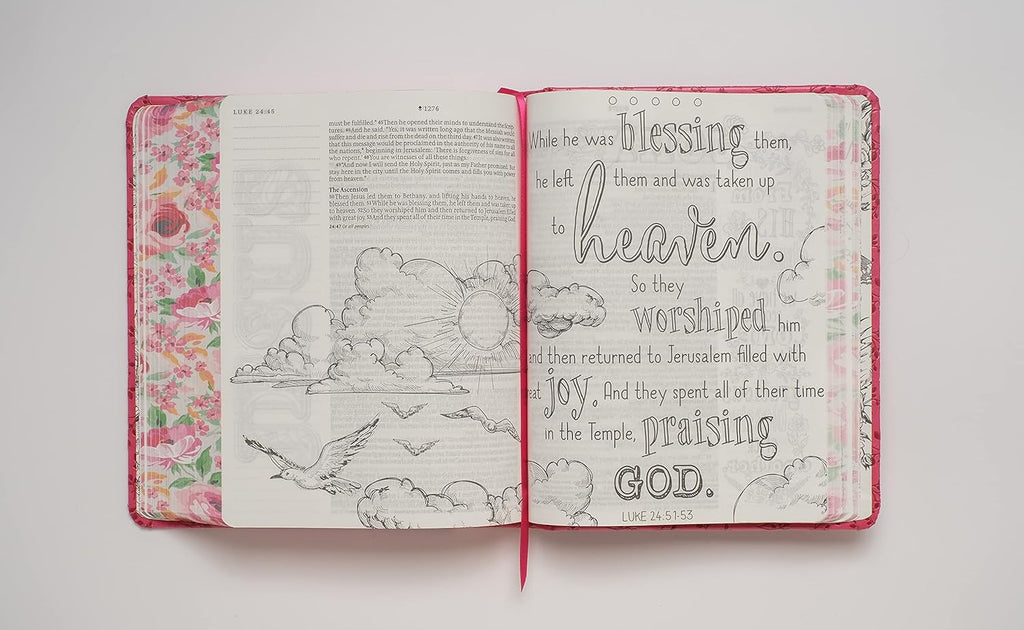 LUKE 24:45
1276
must be fulfilled." 45Then he opened their minds to understand the Scrip-
tures. 46And he said, "Yes, it was written long ago that the Messiah would
suffer and die and rise from the dead on the third day. 47It was also written
that this message would be proclaimed in the authority of his name to all
the nations,* beginning in Jerusalem: 'There is forgiveness of sins for all
who repent.' 48You are witnesses of all these things.
49"And now I will send the Holy Spirit, just as my Father promised. But
stay here in the city until the Holy Spirit comes and fills you with power
from heaven."
The Ascension
50Then Jesus led them to Bethany, and lifting his hands to heaven, he
blessed them. 51While he was blessing them, he left them and was taken up
to heaven. 52So they worshiped him and then returned to Jerusalem filled
with great joy. 53And they spent all of their time in the Temple, praising God.
24:47 Or all peoples.
While he was blessing them,
he left them and was taken up
to heaven.
So they
worshiped him
and then returned to Jerusalem filled with
eat joy. And they spent all of their time
in the Temple, praising
GOD.
LUKE 24:51-53